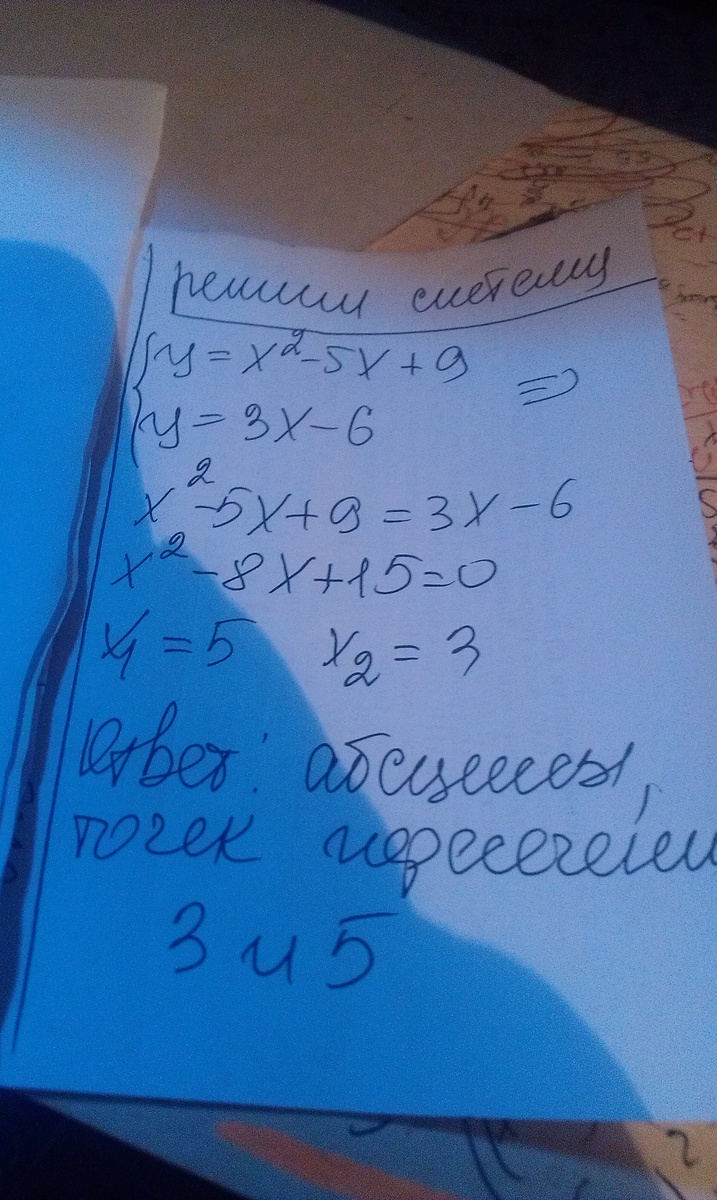 решим систему
y = x² - 5x + 9
y = 3x - 6
=>
x² - 5x + 9 = 3x - 6
x² - 8x + 15 = 0
x₁ = 5 x₂ = 3
Ответ: абсциссы,
точек пересечения
3 и 5